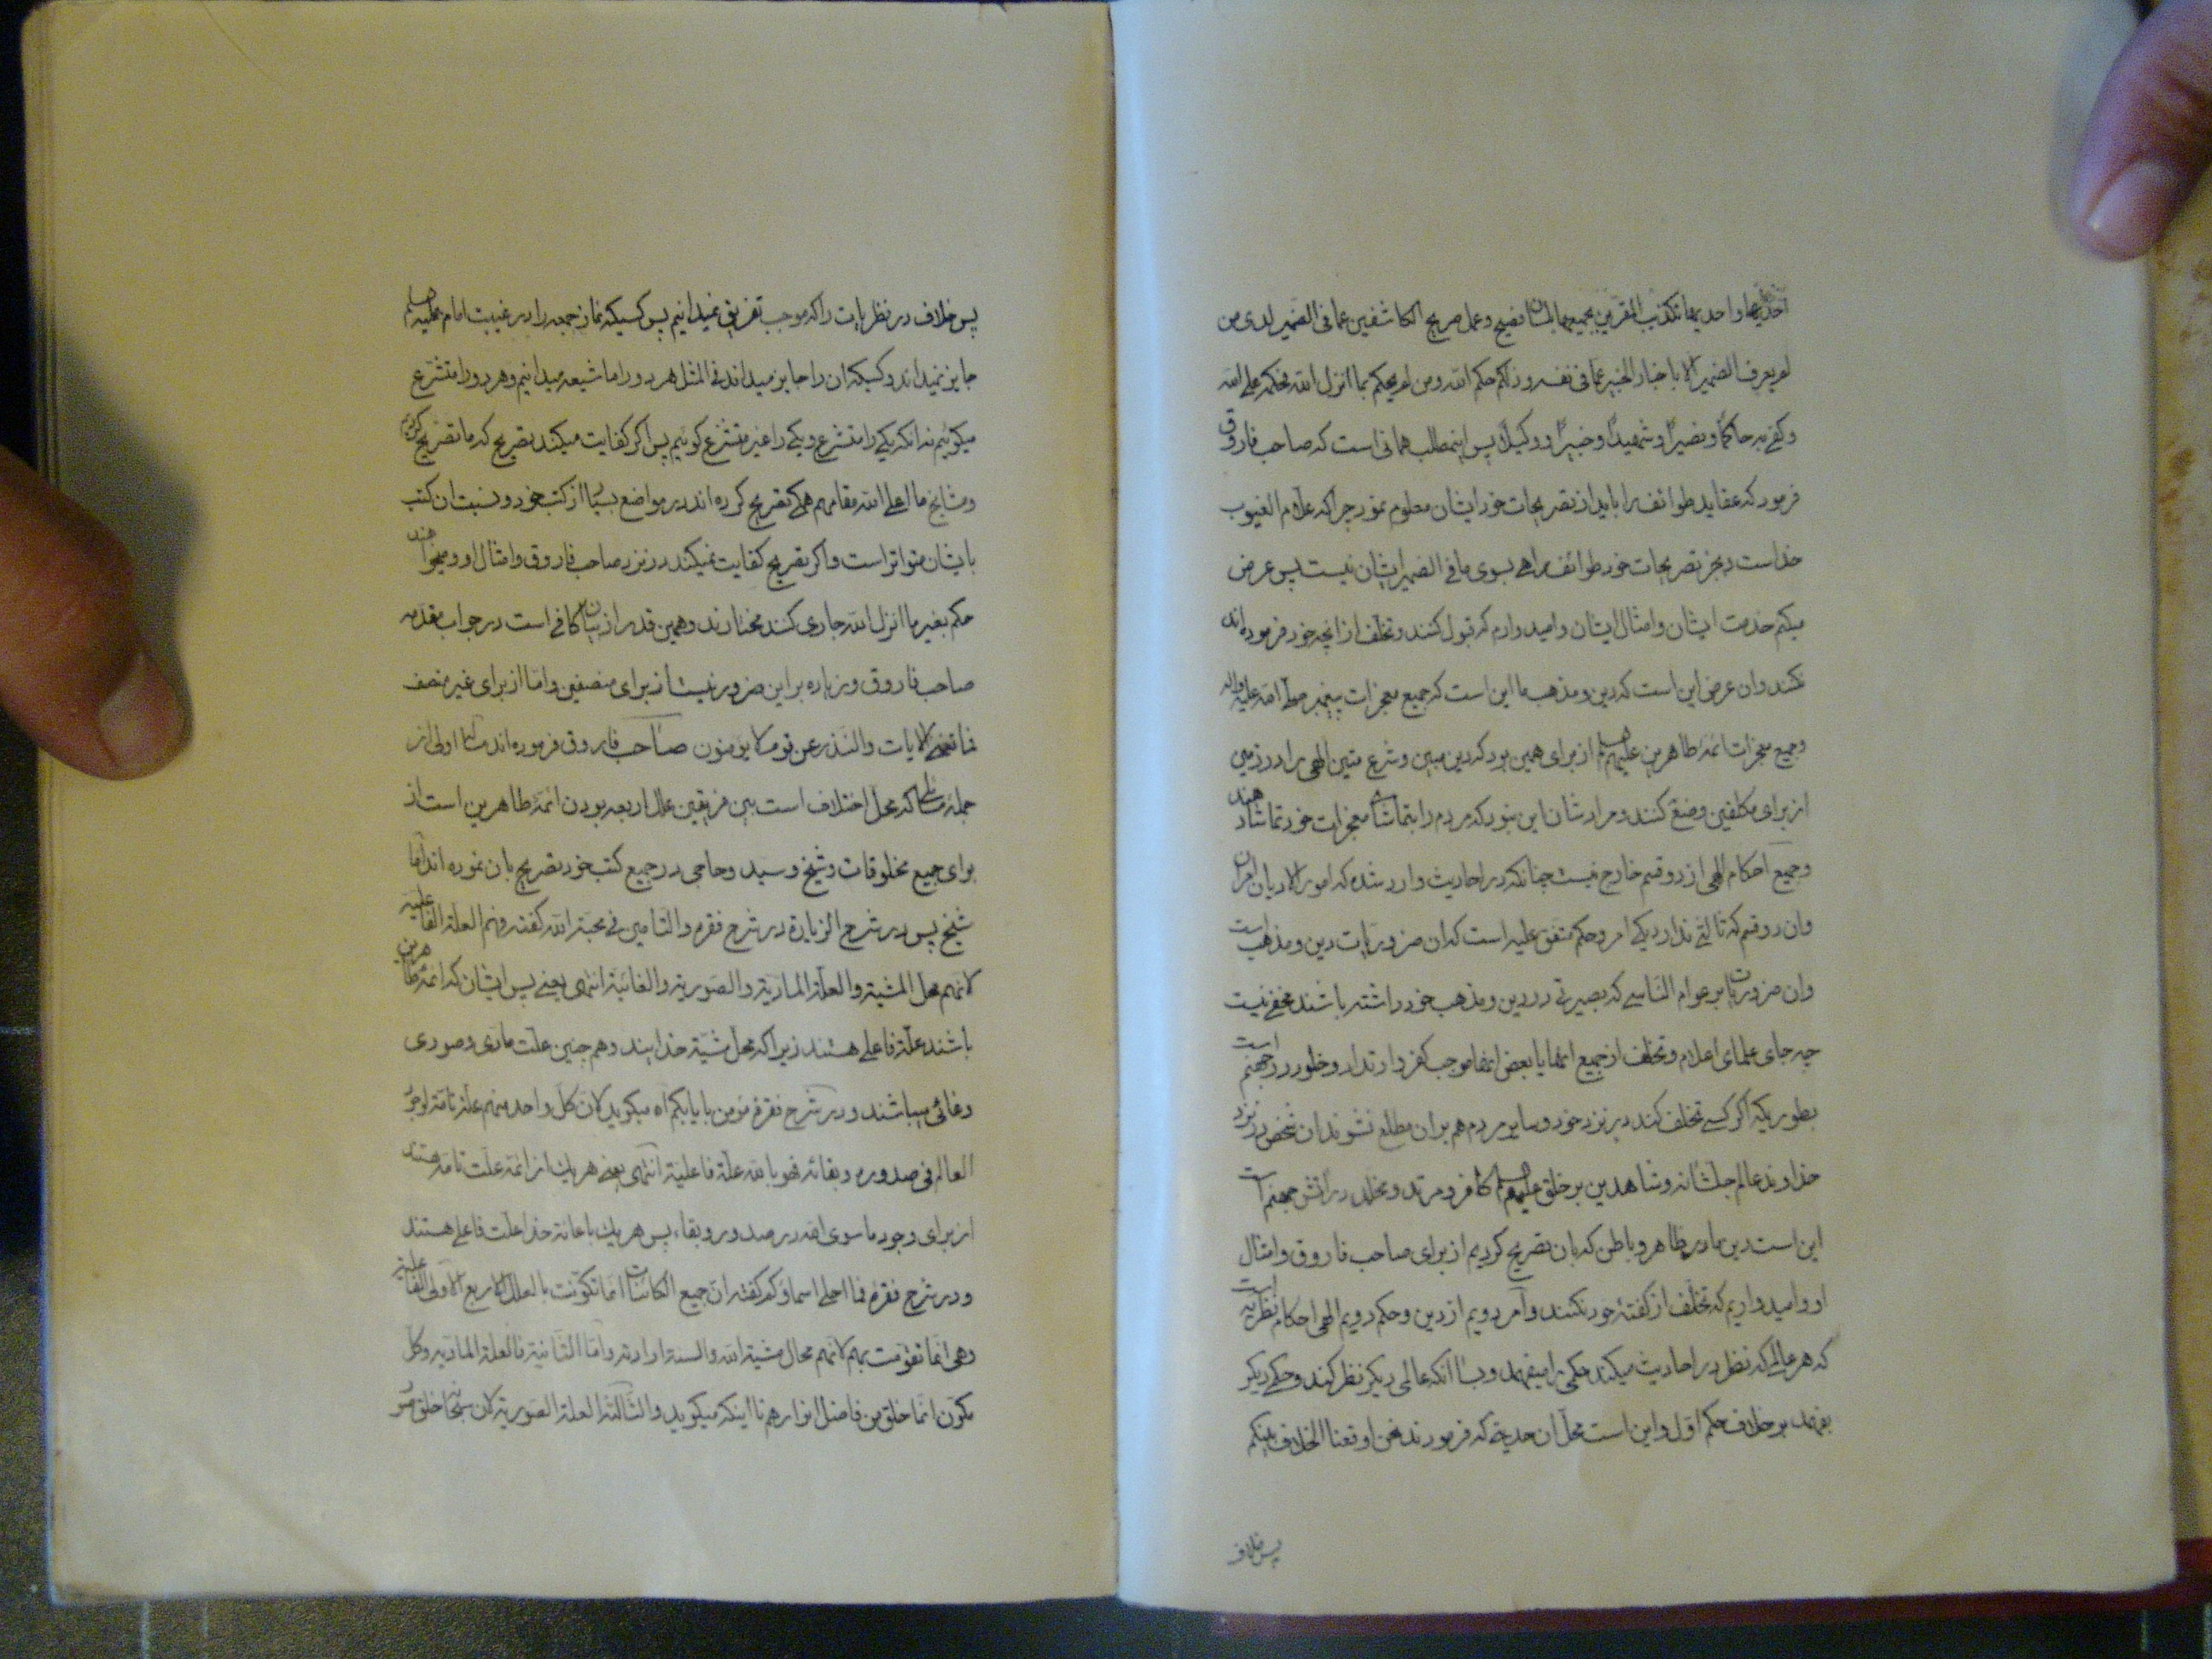 احدیها و احدیها تکذیب المقرین بجمیعها بلسان فصیح و عمل صریح الکاشفین عما فی الضمیر لدی من
لم یعرف الضمیر الا باخبار الخبیر عما فی نفسه و ذلکم حکم الله و من لم یحکم بما انزل الله فحکمه علی الله
و کفی به حاکما و بصیرا و شهیدا و خبیرا و وکیلا پس اینمطلب همانی است که صاحب فاروق
فرمود که عقاید طوائف را باید از تصریحات خود ایشان معلوم نمود چرا که علام الغیوب
خداست و بجز تصریحات خود طوائف راهی بسوی ما فی الضمیر ایشان نیست پس عرض
میکنم خدمت ایشان و امثال ایشان و امیدوارم که قبول کنند و تخلف از انچه خود فرموده اند
نکنند و ان عرض این است که دین و مذهب ما این است که جمیع معجزات پیغمبر صلی الله علیه و اله
و جمیع معجزات ائمه طاهرین علیهم السلم از برای همین بود که دین مبین و شرع متین الهی را در زمین
از برای مکلفین وضع کنند و مرادشان این نبود که مردم را بتماشای معجزات خود تماشا دهند
و جمیع احکام الهی از دو قسم خارج نیست چنانکه در احادیث وارد شده که امور الادیان امران
و ان دو قسم که ثالثی ندارد یکی امر و حکم متفق علیه است که ان ضروریات دین و مذهب است
و ان ضروریات بر عوام الناسی که بصیرتی در دین و مذهب خود داشته باشند مخفی نیست
چه جای علمای اعلام و تخلف از جمیع انها یا بعض انها موجب کفر و ارتداد و خلود در جهنم است
بطوریکه اگر کسی تخلف کند در نزد خود و سایر مردم هم بران مطلع نشوند ان شخص در نزد
خداوند عالم جلشانه و شاهدین بر خلق علیهم السلم کافر و مرتد و مخلد در اتش جهنم است
این است دین ما در ظاهر و باطن که بان تصریح کردیم از برای صاحب فاروق و امثال
او و امیدواریم که تخلف از گفته خود نکنند و امر دویم از دین و حکم دویم الهی احکام نظریه است
که هر عالمی که نظر در احادیث میکند حکمی را میفهمد و بسا انکه عالمی دیگر نظر کند و حکمی دیگر
بفهمد بر خلاف حکم اول و این است محل ان حدیثی که فرمودند نحن اوقعنا الخلاف بینکم
پس خلاف
پس خلاف در نظریات را که موجب تفریق نمیدانیم پس کسیکه نماز جمعه را در غیبت امام علیه السلم
جایز نمیداند و کسیکه ان را جایز میداند فی المثل هر دو را ما شیعه میدانیم و هر دو را متشرع
میگوئیم نه انکه یکی را متشرع و یکی را غیر متشرع گوئیم پس اگر کفایت میکند تصریح که ما تصریح کردیم
و مشایخ ما اعلی الله مقامهم همگی تصریح کرده اند در مواضع بسیار از کتب خود و نسبت ان کتب
بایشان متواتر است و اگر تصریح کفایت نمیکند در نزد صاحب فاروق و امثال او و میخواهند
حکم بغیر ما انزل الله جاری کنند مختارند و همین قدر از بیان کافی است در جواب مقدمه
صاحب فاروق و زیاده بر این ضرور نیست از برای منصفین و اما از برای غیر منصف
فما تغنی الایات و النذر عن قوم لا یؤمنون صاحب فاروق فرموده اند مسئله اولی از
جمله مسائلی که محل اختلاف است بین فریقین علل اربعه بودن ائمه طاهرین است از
برای جمیع مخلوقات و شیخ و سید و حاجی در جمیع کتب خود تصریح بان نموده اند اما
شیخ پس در شرح الزیارة در شرح فقره و التامین فی محبة الله گفته فهم العلة الفاعلیة
لانهم محل المشیة و العلة المادیة و الصوریة و الغائیة انتهی یعنی پس ایشان که ائمه طاهرین
باشند علة فاعلی هستند زیرا که محل مشیة خدایند و هم چنین علت مادی و صوری
و غائی میباشند و در شرح فقره مؤمن بایابکم اه میگوید لان کل واحد منهم علة تامة لوجود
العالم فی صدوره و بقائه فهو بالله علة فاعلیة انتهی یعنی هر یک از ائمه علت تامه هستند
از برای وجود ما سوی الله در صدور و بقاء پس هر یک باعانة خدا علت فاعلی هستند
و در شرح فقره فما احلی اسماؤکم گفته ان جمیع الکائنات انما تکونت بالعلل الاربع الاولی الفاعلیة
و هی انما تقومت بهم لانهم محال مشیة الله و السنة ارادته و اما الثانیة فالعلة المادیه و کل
مکون انما خلق من فاضل انوارهم تا اینکه میگوید و الثالثة العلة الصوریة لان